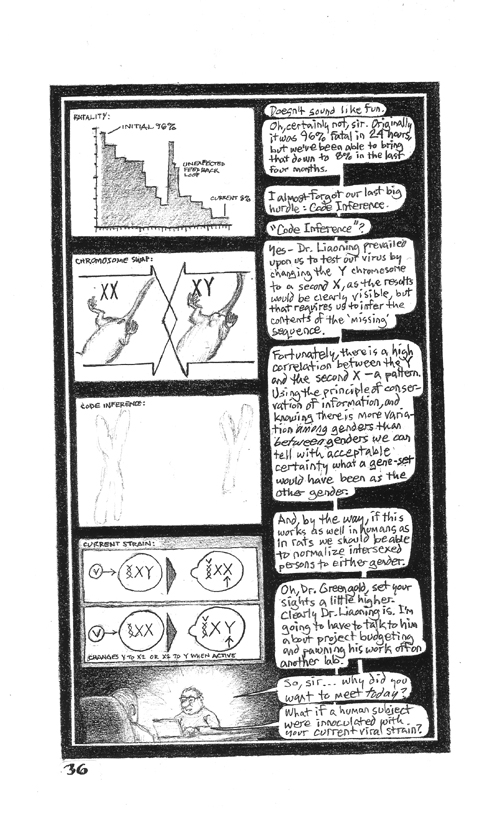 FATALITY:
INITIAL 96%
UNEXPECTED
FEEDBACK
LOOP
CURRENT 8%
Doesn't sound like fun.
Oh, certainly not, sir. Originally
it was 96% fatal in 24 hours,
but we've been able to bring
that down to 8% in the last
four months.
I almost forgot our last big
hurdle: Code Inference.
"Code Inference"?
CHROMOSOME SWAP:
XX
XY
Yes - Dr. Liaoning prevailed
upon us to test our virus by
changing the Y chromosome
to a second X, as the results
would be clearly visible, but
that requires us to infer the
contents of the 'missing'
sequence.
CODE INFERENCE:
Fortunately, there is a high
correlation between the Y
and the second X - a pattern.
Using the principle of conser-
vation of information, and
knowing there is more varia-
tion among genders than
between genders we can
tell with acceptable
certainty what a gene-set
would have been as the
other gender.
And, by the way, if this
works as well in humans as
in rats we should be able
to normalize intersexed
persons to either gender.
CURRENT STRAIN:
V XY XX
V XX XY
CHANGES Y TO X2 OR X2 TO Y WHEN ACTIVE
Oh, Dr. Greengold, set your
sights a little higher.
Clearly Dr. Liaoning is. I'm
going to have to talk to him
about project budgeting
and pawning his work off on
another lab.
So, sir... why did you
want to meet today?
What if a human subject
were innoculated with
your current viral strain?
36